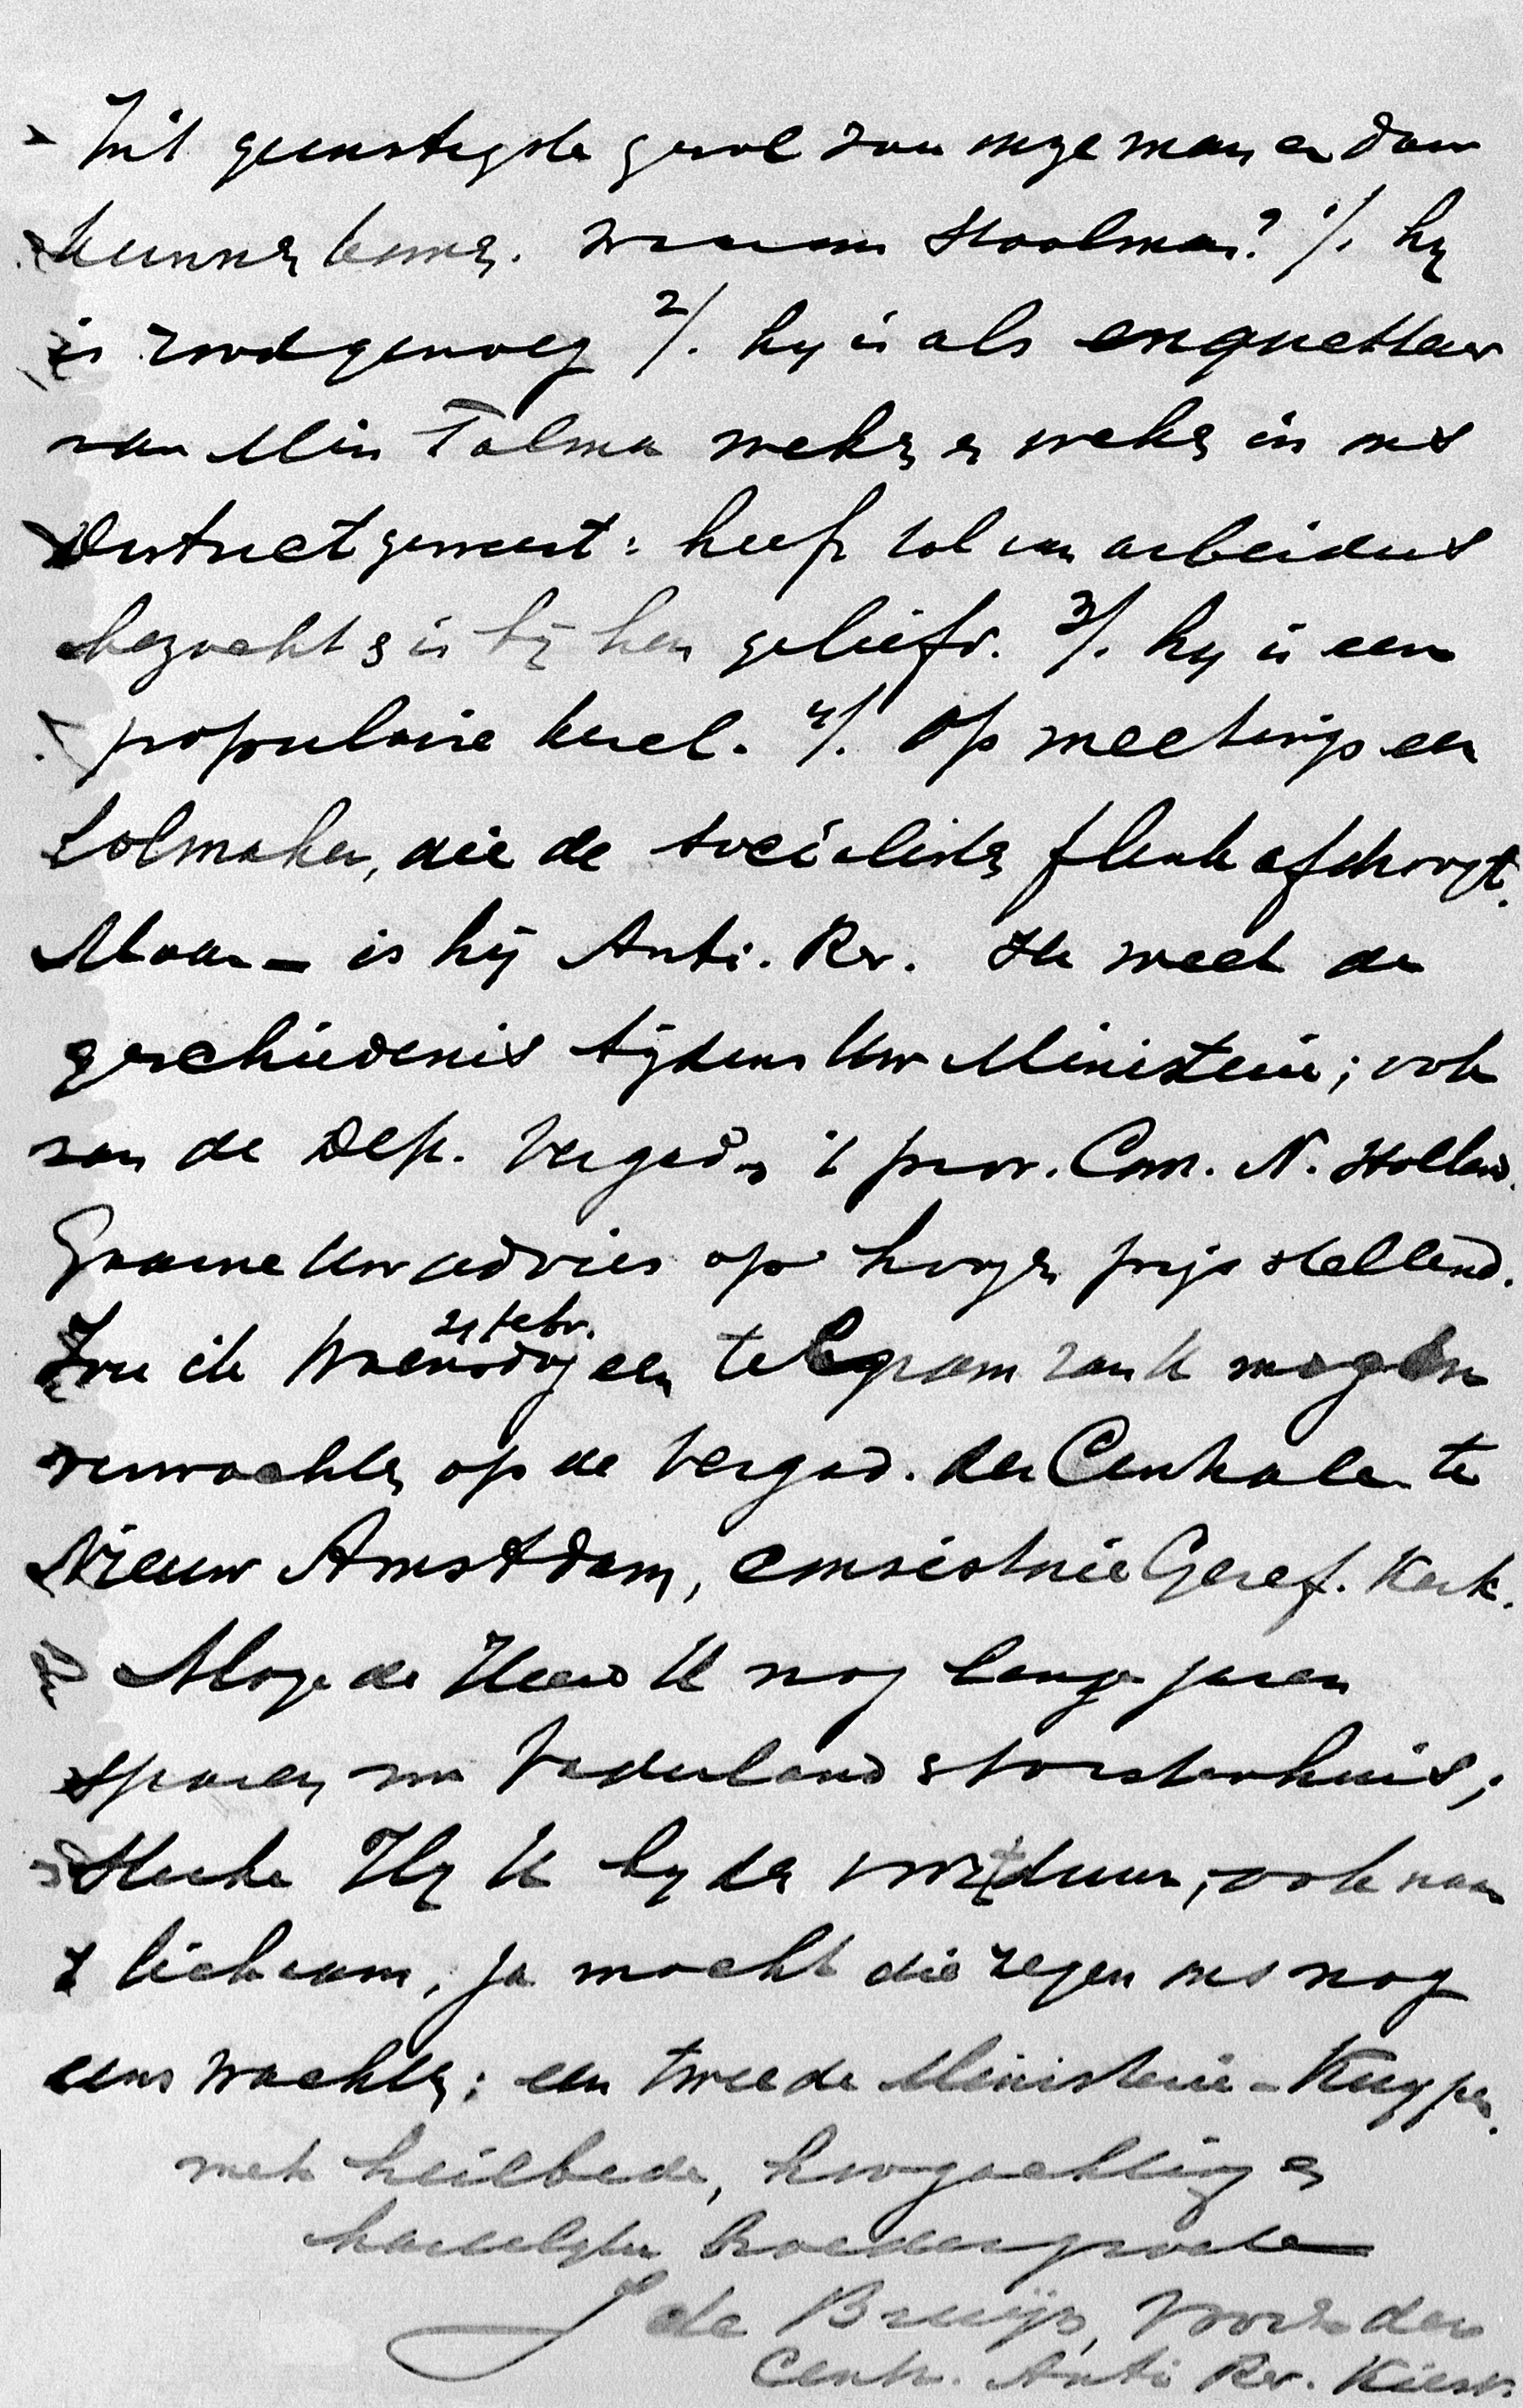 In 't gunstigste geval zou onze man er dan
kunnen komen. Waarom Hoolman? 1/. hij
is rood genoeg 2/. hij is als enquetteur
van Min Talma weken en weken in ons
District geweest: heeft tal van arbeiders
bezocht & is bij hen geliefd. 3/. hij is een
populaire kerel. 4/. Op meetings een
Lolmaker, die de socialisten flink afdroogt.
Maar – is hij Anti. Rev. Ik weet de
geschiedenis tijdens Uw Ministerie; ook
van de Dep. Vergad. 't prov. Com. N. Holland.
Gaarne Uw advies op hoogen prijs stellend.
Zou ik Woensdag 21 Febr. een telegram van U mogen
verwachten op de Vergad. der Centrale te
Nieuw Amstdam, consistorie Geref. Kerk.
Moge de Heere U nog lange jaren
sparen voor Vaderland & Vorstenhuis;
Sterke Hij U bij den voortduur, ook naar
't lichaam, ja mocht die zegen ons nog
eens wachten: een tweede Ministerie-Kuyper.
met heilbede, hoogachting en
hartelijke broedergroete
J de Bruijn, Voorz. der
Centr. Anti Rev. Kiesv.